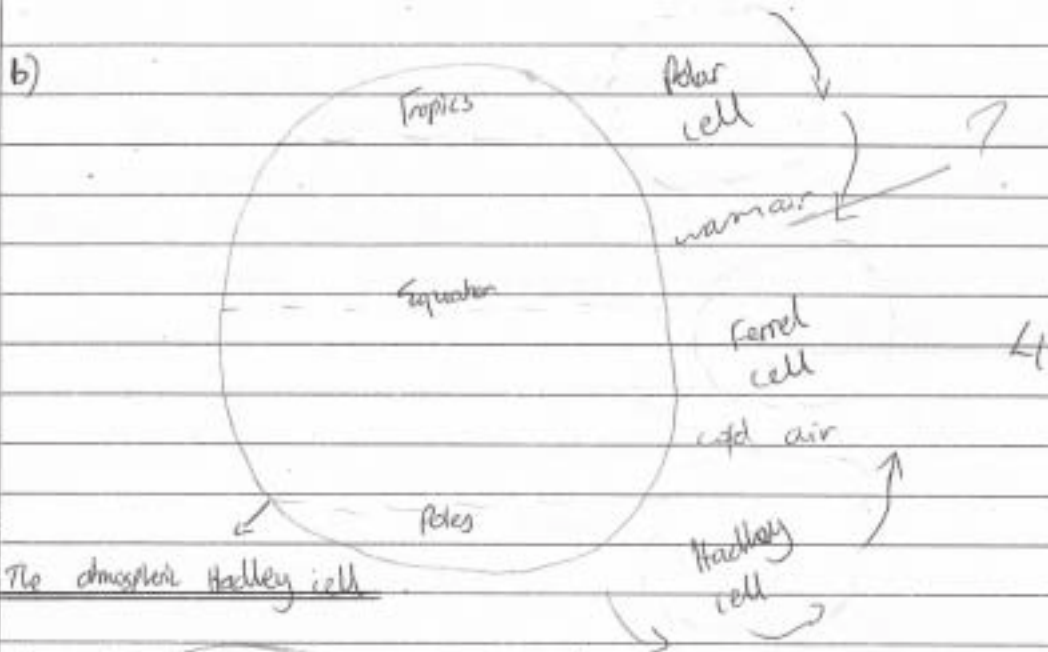 b)
Tropics
Polar
cell
?
warm air
Equator
Ferrel
cell
4
cold air
Poles
Hadley
cell
The atmospheric Hadley cell